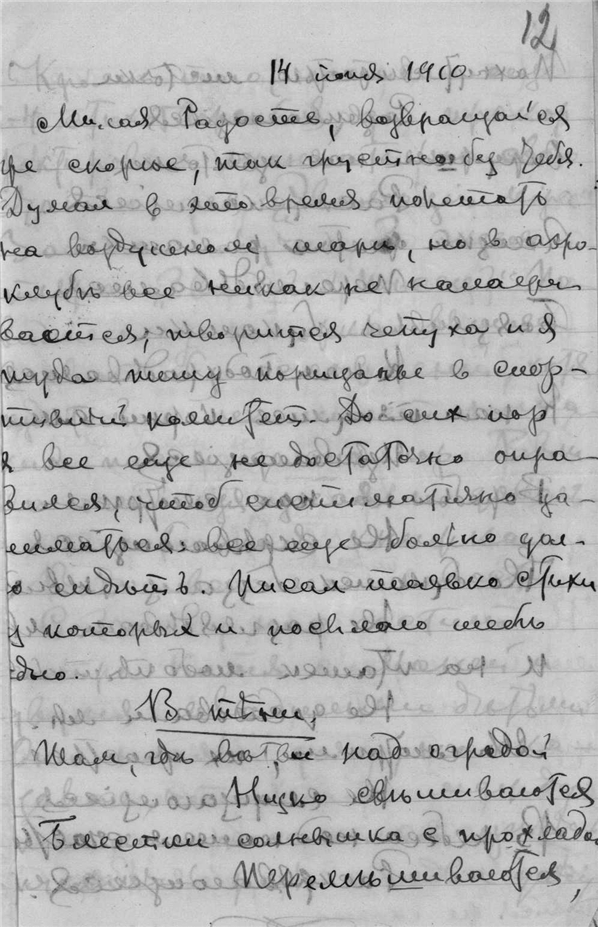 12
14 июня 1910
Милая Радость, возвращайся
же скорѣе, так грустно без тебя.
Думал в это время полетать
на воздушном шарѣ, но в аэро-
клубѣ все никак не налажи-
вается; творится чепуха и я
туда пишу порицанье в спор-
тивный комитет. До сих пор
я все еще недостаточно опра-
вился, чтоб систематично за-
ниматься: все еще больно дол-
го сидѣть. Писал только стихи
из которых и посылаю тебѣ
одно.
В тѣни.
Там, гдѣ вѣтви над оградой
Низко свѣшиваются
Блестки солнышка с прохладой
Перемѣшиваются,